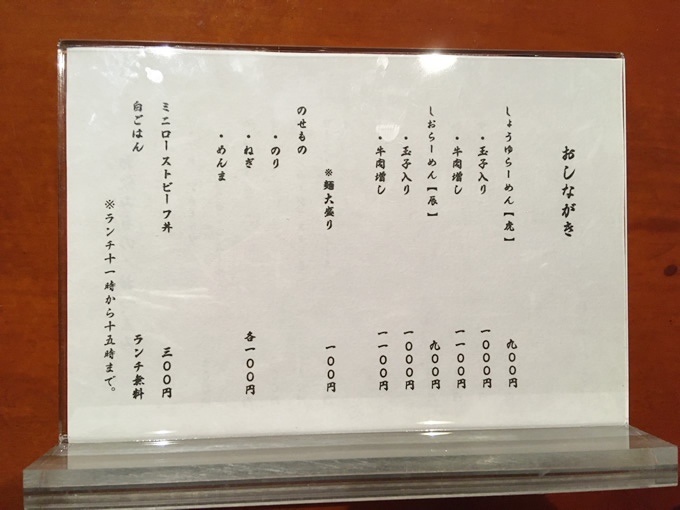 おしながき
しょうゆらーめん【虎】 九〇〇円
・玉子入り 一〇〇〇円
・牛肉増し 一一〇〇円
しおらーめん【辰】 九〇〇円
・玉子入り 一〇〇〇円
・牛肉増し 一一〇〇円
※麺大盛り 一〇〇円
のせもの
・のり
・ねぎ 各一〇〇円
・めんま
ミニローストビーフ丼 三〇〇円
白ごはん ランチ無料
※ランチ十一時から十五時まで。